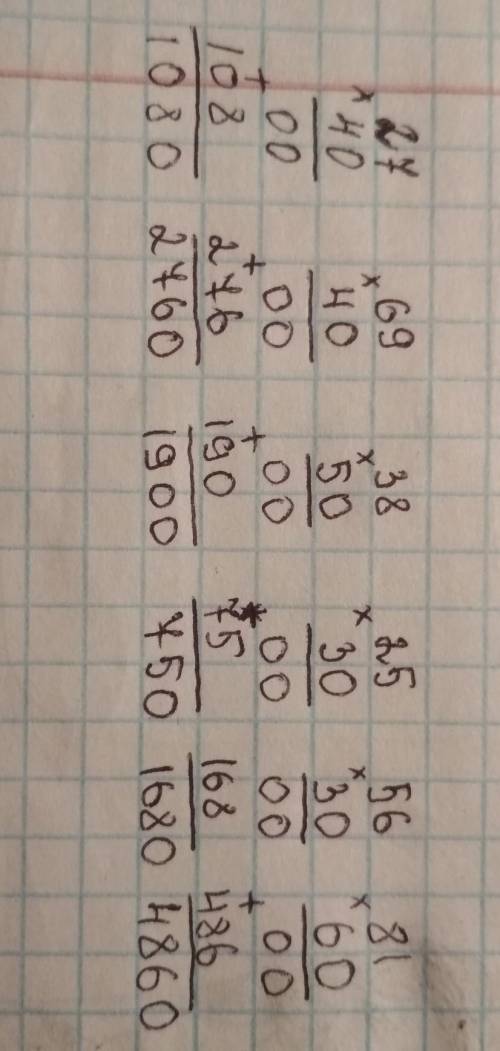 27 69 38 25 56 81
× 40 × 40 × 50 × 30 × 30 × 60
00 00 00 00 00 00
+ + + * +
108 276 190 75 168 486
1080 2760 1900 750 1680 4860